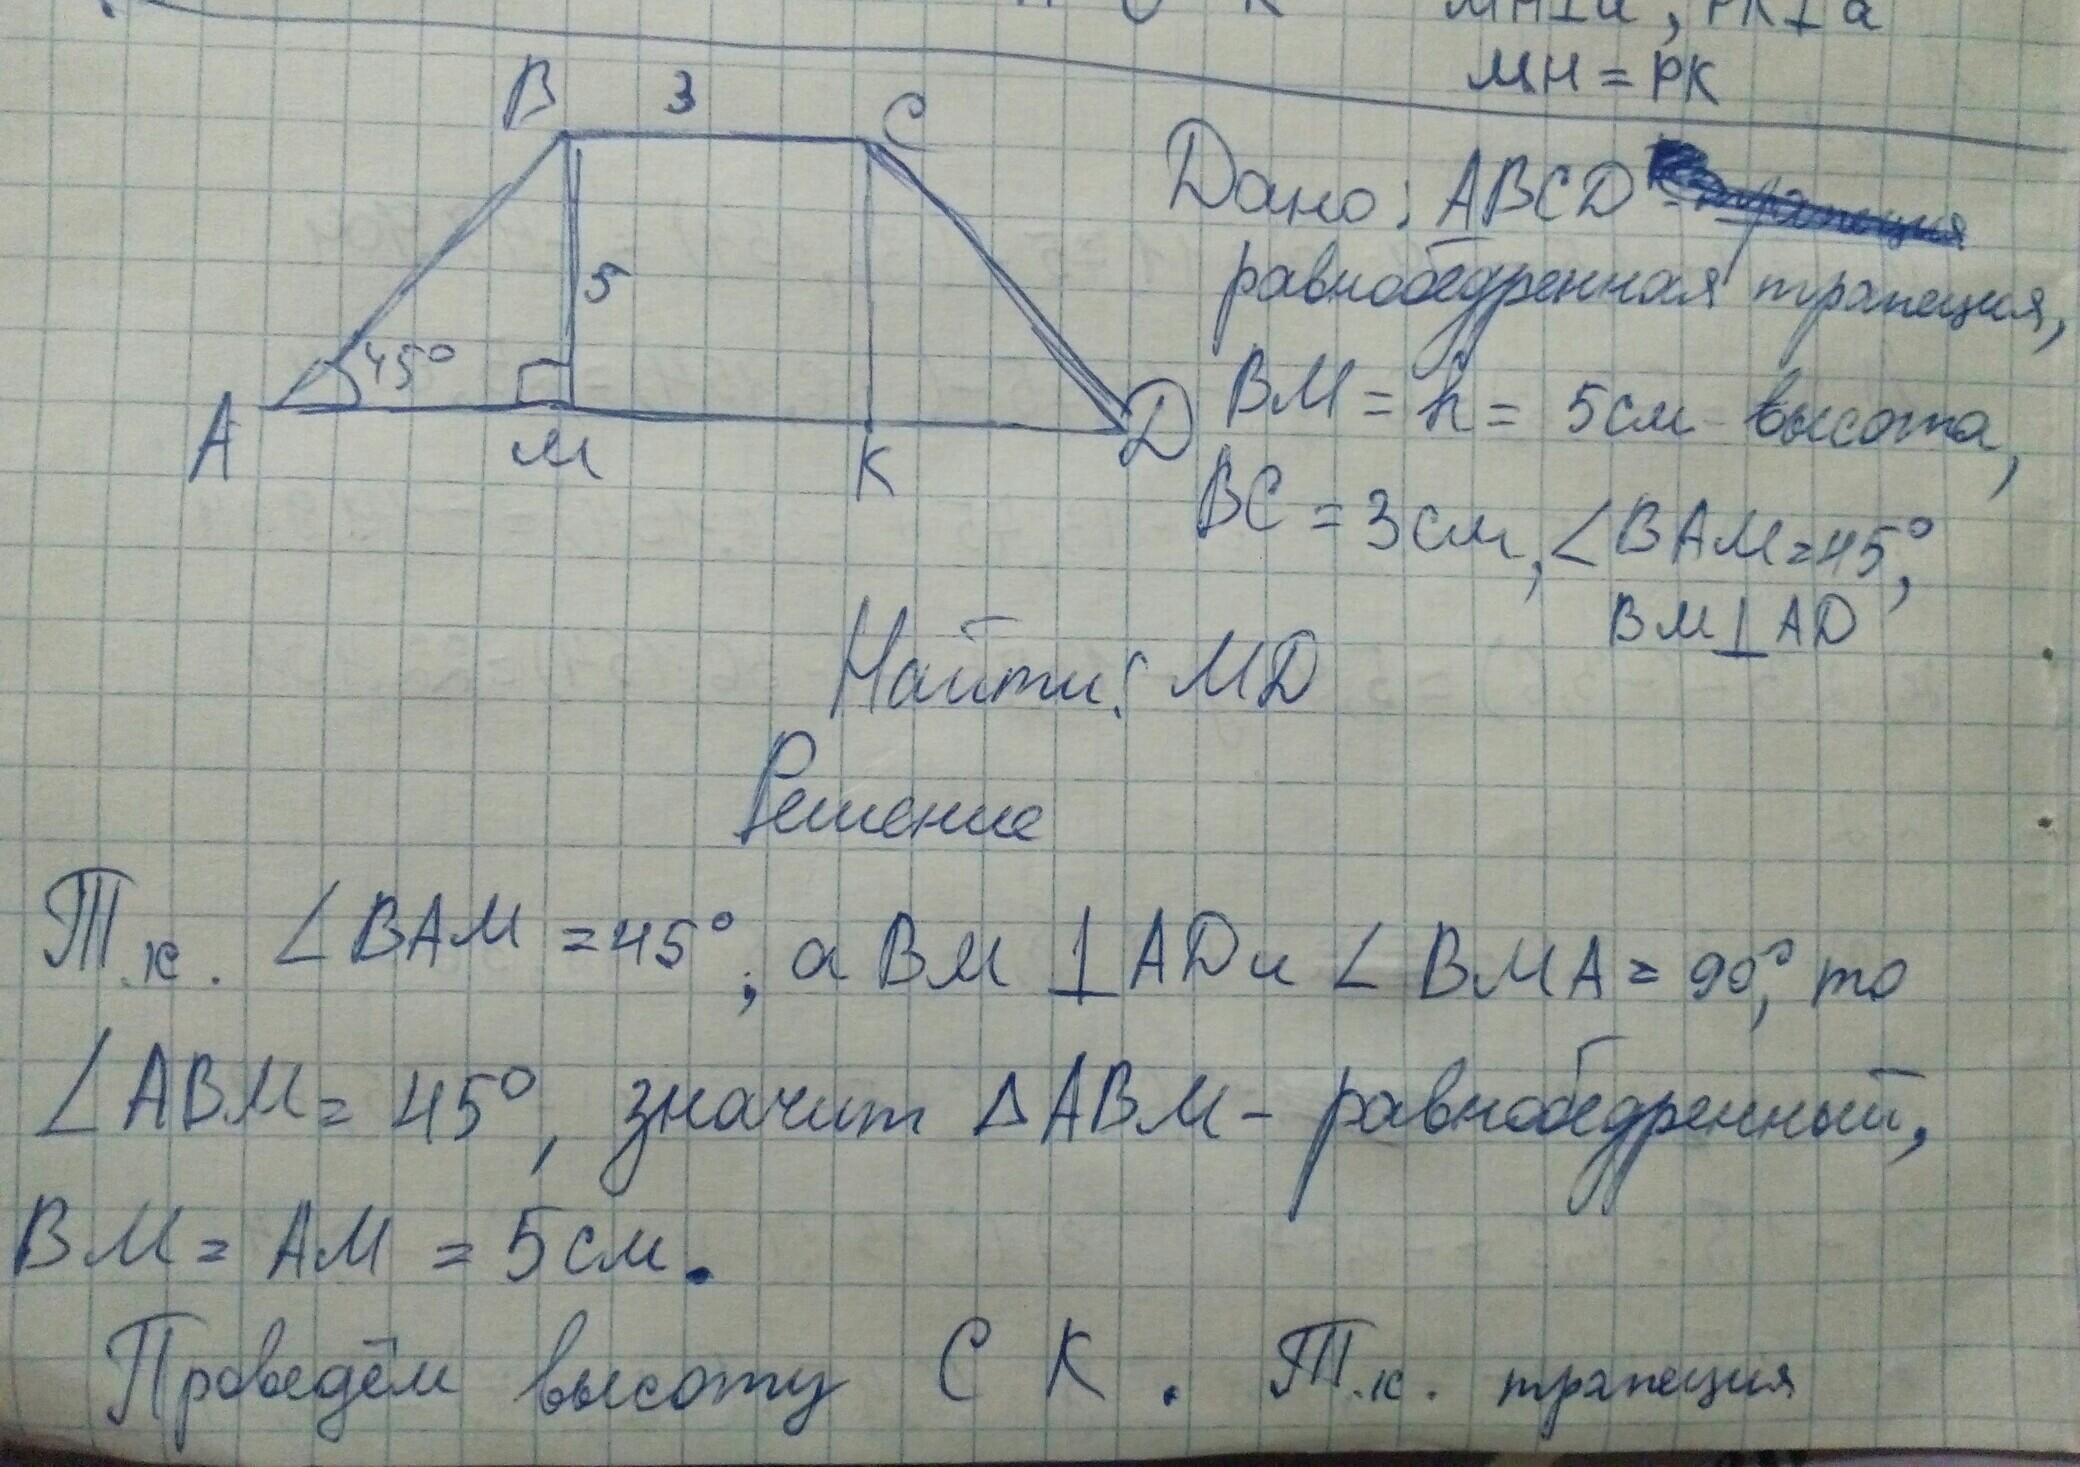 MH⊥a, PK⊥a
MH = PK
B 3 C
5
45°
A M K D
Дано: ABCD
равнобедренная трапеция,
BM = h = 5 см высота,
BC = 3 см, ∠BAM = 45°,
BM⊥AD
Найти: MD
Решение
Т.к. ∠BAM = 45°, а BM ⊥ AD и ∠BMA = 90°, то
∠ABM = 45°, значит △ABM - равнобедренный,
BM = AM = 5 см.
Проведём высоту CK. Т.к. трапеция